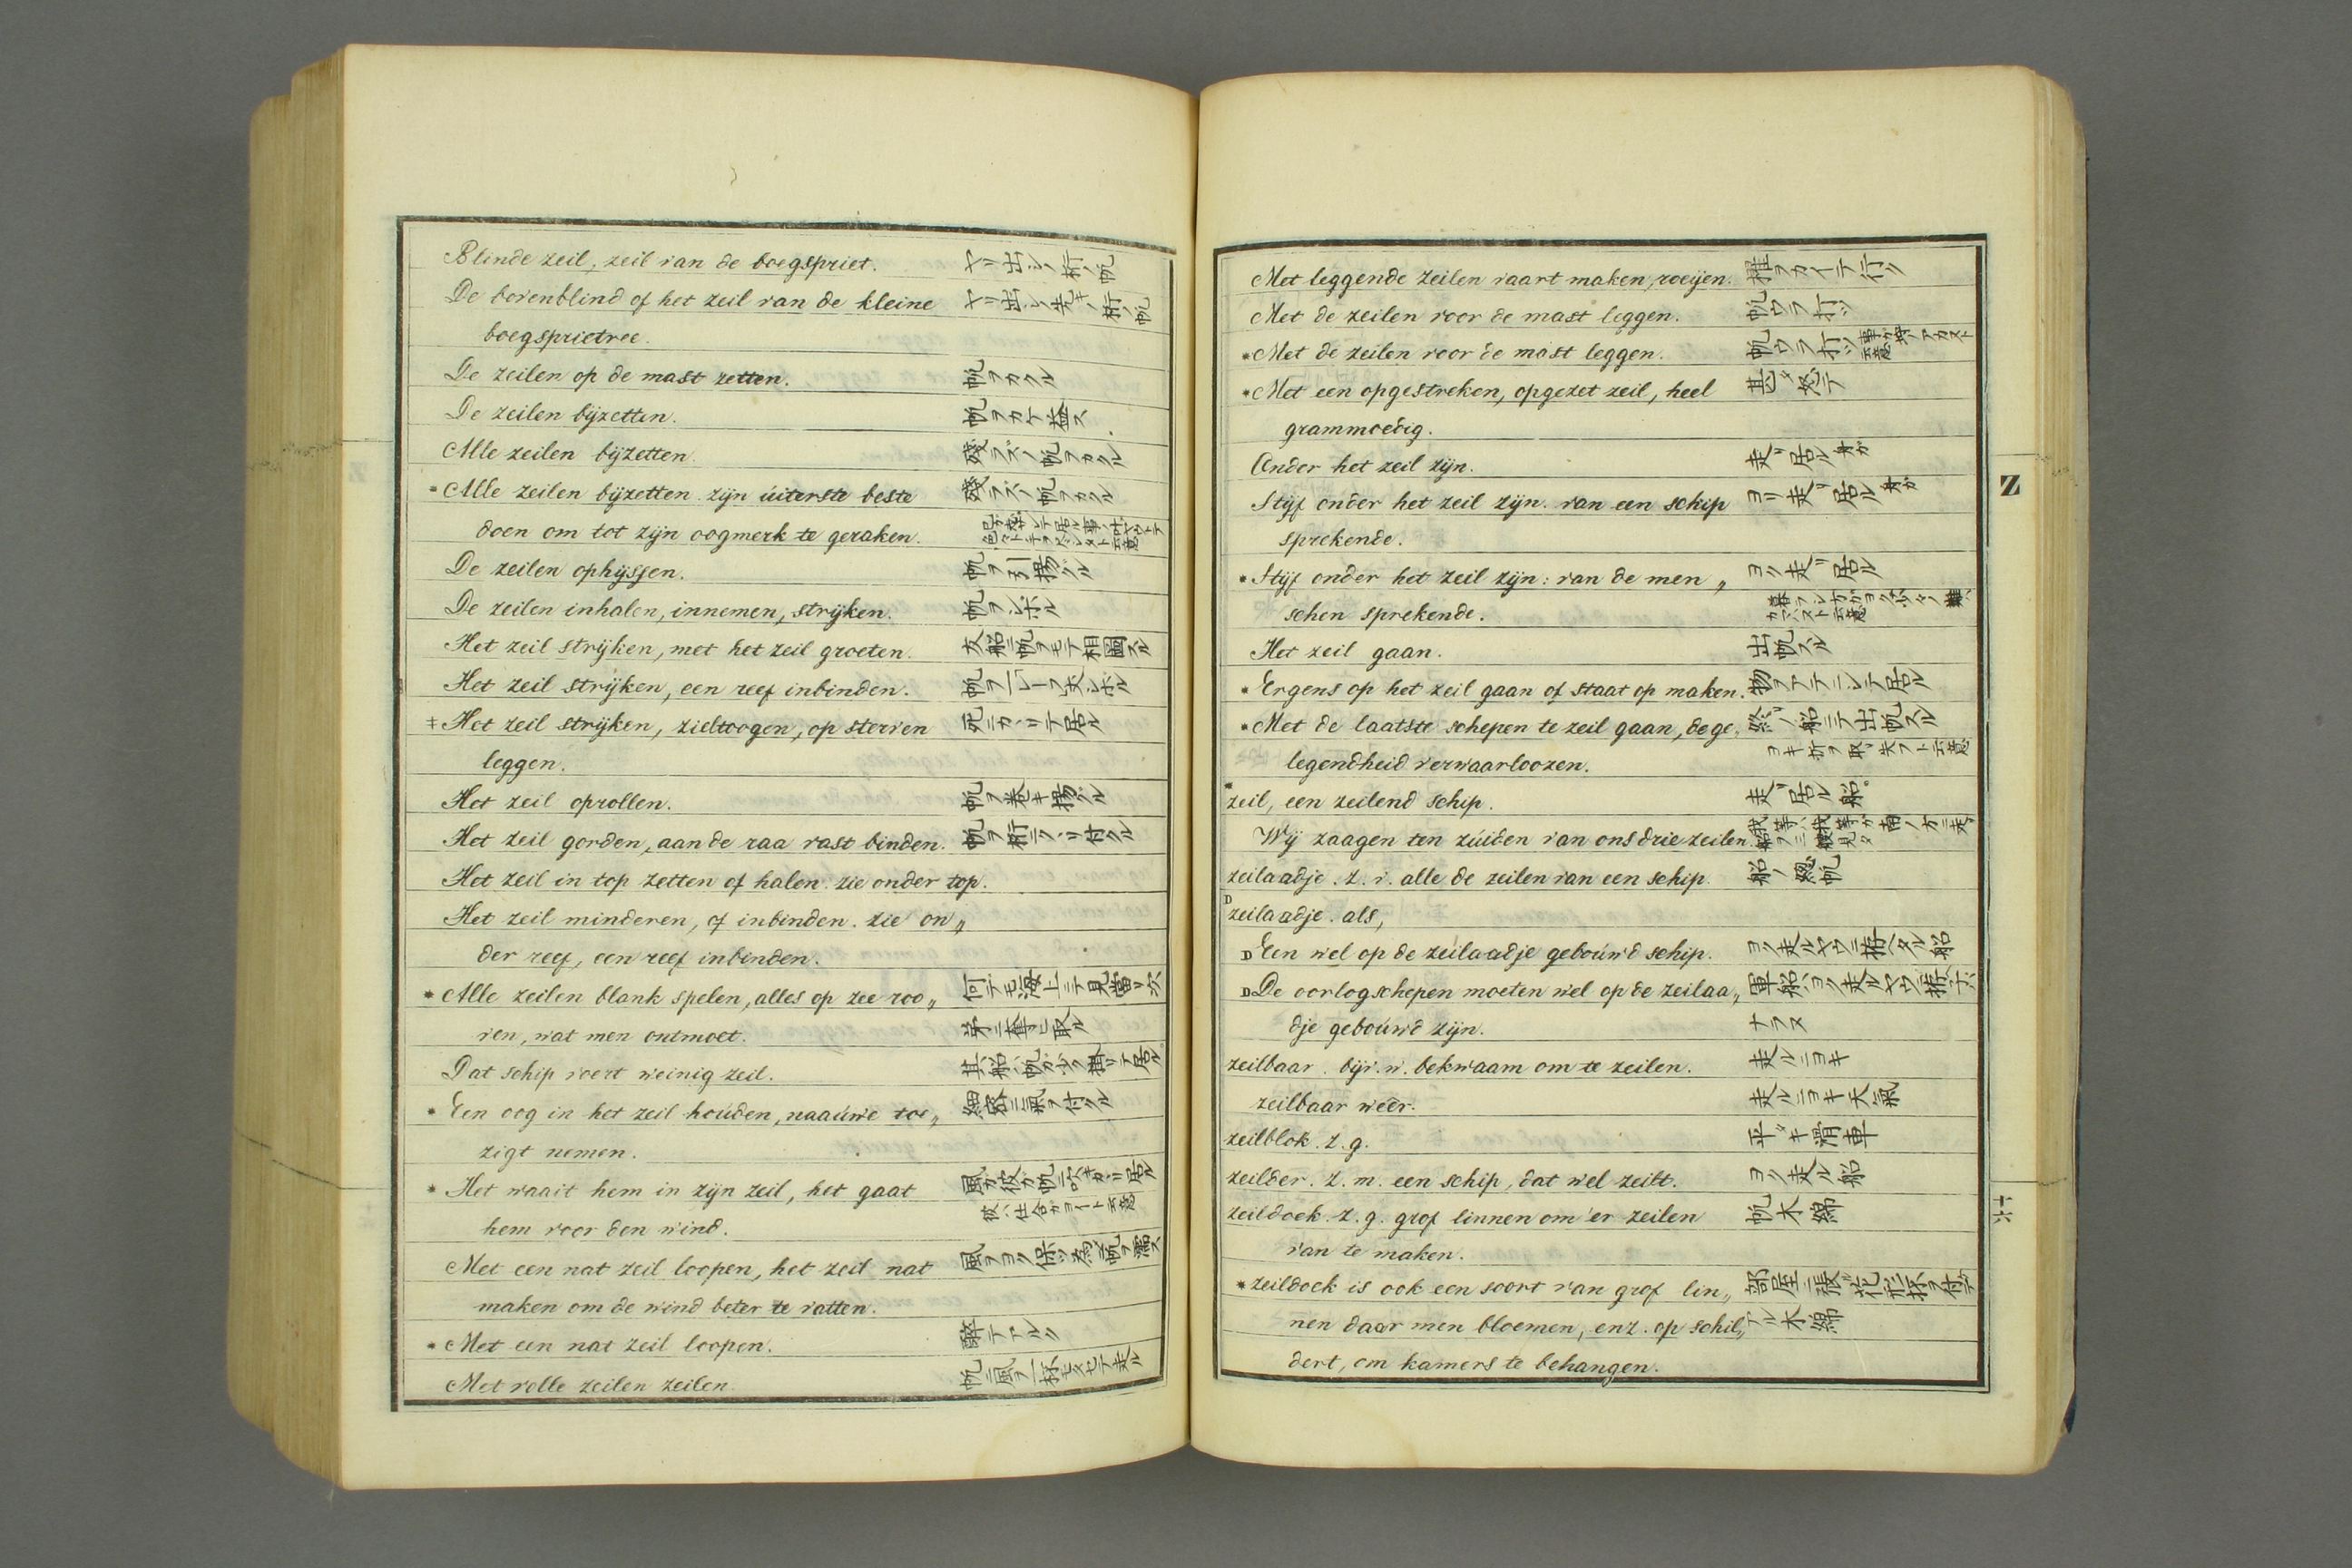 Blinde zeil, zeil van de boegspriet. ヤリ出シノ桁ノ帆
De bovenblind of het zeil van de kleine ヤリ出シノ先キノ桁ノ帆
boegsprietree.
De zeilen op de mast zetten. 帆ヲカクル
De zeilen bijzetten. 帆ヲカケ益ス
Alle zeilen bijzetten. 殘ラズノ帆ヲカクル
* Alle zeilen bijzetten. zijn uiterste beste 殘ラズノ帆ヲカクル
doen om tot zijn oogmerk te geraken.
De zeilen ophijssen. 帆ヲ引揚グル
De zeilen inhalen, innemen, strijken. 帆ヲシボル
Het zeil strijken, met het zeil groeten. 友船ニ帆ヲモテ相圖スル
Het zeil strijken, een reef inbinden. 帆ヲ一レーフ丈シボル
‡ Het zeil strijken, zieltoogen, op sterven 死ニカヽリテ居ル
leggen.
Het zeil oprollen. 帆ヲ巻キ揚グル
Het zeil gorden, aan de raa vast binden. 帆ヲ桁ニクヽリ付クル
Het zeil in top zetten of halen. zie onder top.
Het zeil minderen, of inbinden. zie on„
der reef, een reef inbinden.
* Alle zeilen blank spelen, alles op zee roo„ 何デモ海上ニテ見當リ次
ven, wat men ontmoet. 第ニ奪ヒ取ル
Dat schip voert weinig zeil. 其船ハ帆ヲ少ク掛ケテ居ル
* Een oog in het zeil houden, naauwe toe„ 細密ニ氣ヲ付クル
zigt nemen.
* Het waait hem in zijn zeil, het gaat 風ガ彼ガ帆ニ吹キカヽリ居ル
hem voor den wind. 彼ハ仕合ガヨイト云意
Met een nat zeil loopen, het zeil nat 風ヲヨク保ツ爲ニ帆ヲ濡ス
maken om de wind beter te vatten.
* Met een nat zeil loopen. 醉テアルク
Met volle zeilen zeilen. 帆ニ風ヲ一杯モタセテ走ル
Met leggende zeilen vaart maken, roeijen. 櫂ヲカイテ行ク
Met de zeilen voor de mast leggen. 帆ウラヲ打ツ
* Met de zeilen voor de mast leggen. 帆ウラヲ打ツ
* Met een opgestreken, opgezet zeil, heel 甚ダ怒テ
grammoedig.
Onder het zeil zijn. 走リ居ル
Stijf onder het zeil zijn. van een schip ヨク走リ居ル
sprekende.
* Stijf onder het zeil zijn: van de men„ ヨク走リ居ル
schen sprekende.
Het zeil gaan. 出帆スル
* Ergens op het zeil gaan of staat op maken. 物ヲアテニシテ居ル
* Met de laatste schepen te zeil gaan, de ge„ 終リノ船ニテ出帆スル
legendheid verwaarloozen. ヨキ折ヲ取リ失フト云意
* zeil, een zeilend schip. 走リ居ル船
Wij zaagen ten zuiden van ons drie zeilen.
zeilaadje. z. v. alle de zeilen van een schip. 船ノ總帆
D zeilaadje. als,
D Een wel op de zeilaadje gebouwd schip. ヨク走ルヤウニ拵ヘタル船
D De oorlogschepen moeten wel op de zeilaa„ 軍船ハヨク走ルヤウニ拵子バ
dje gebouwd zijn. ナラヌ
zeilbaar. bijv. w. bekwaam om te zeilen. 走ルニヨキ
zeilbaar weêr. 走ルニヨキ天氣
zeilblok. z. g. 平キ滑車
zeilder. z. m. een schip, dat wel zeilt. ヨク走ル船
zeildoek. z. g. grof linnen om 'er zeilen 帆木綿
van te maken.
* zeildoek is ook een soort van grof lin„ 部屋ニ張ル花形抔ヲ付ケ
nen daar men bloemen, enz. op schil„ タル木綿
dert, om kamers te behangen.
Z
六十